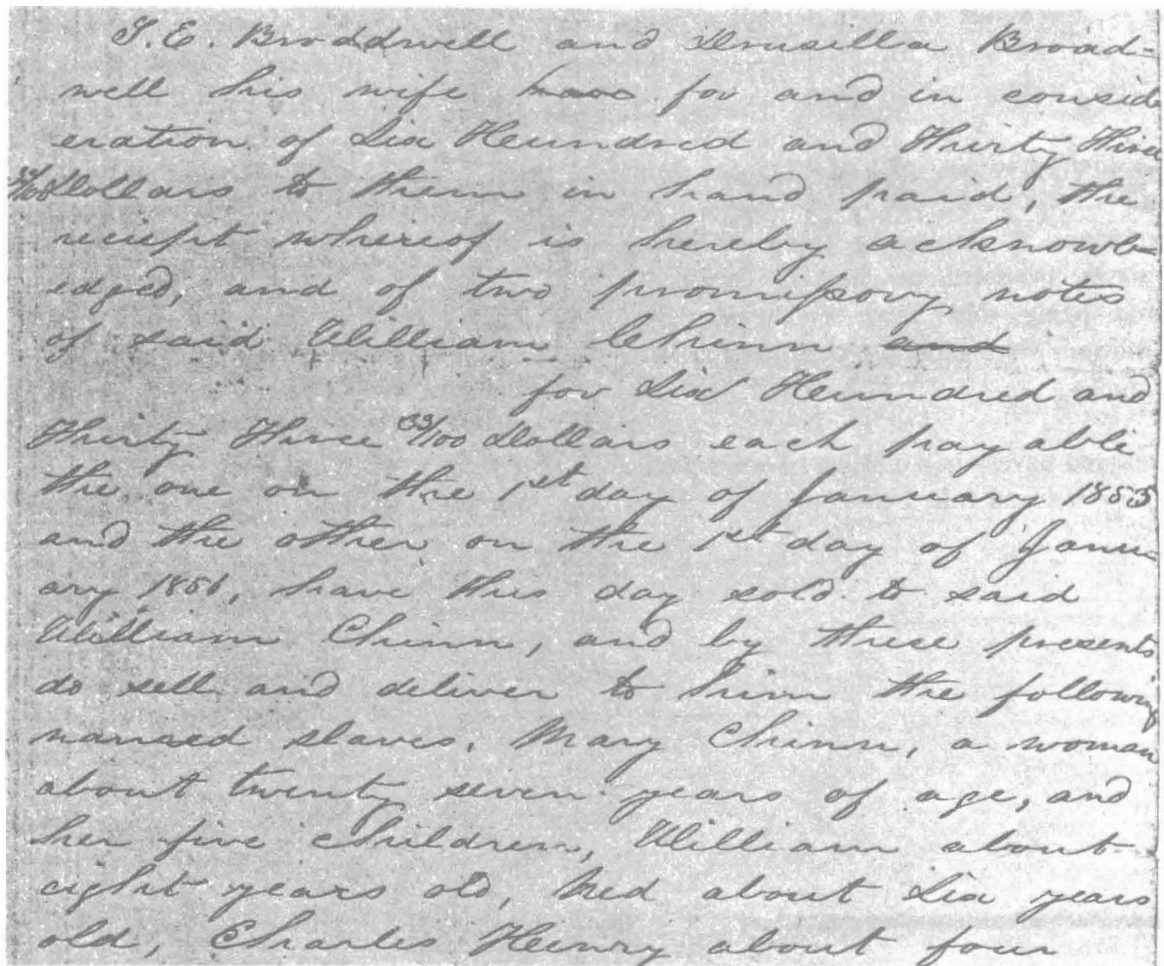 J. E. Broddwell and Drusilla Broad-
well his wife have for and in consid
eration of Six Hundred and Thirty Three
33/100 Dollars to them in hand paid, the
reciept whereof is hereby acknowl-
edged, and of two promissory notes
of said William Chinn and
for Six Hundred and
Thirty Three 33/100 Dollars each payable
the one on the 1st day of January 1855
and the other on the 1st day of Janu-
ary 1856, have this day sold to said
William Chinn, and by these presents
do sell and deliver to him the following
named slaves, Mary Chinn, a woman
about twenty seven years of age, and
her five children, William about
eight years old, Ned about Six years
old, Charles Henry about four